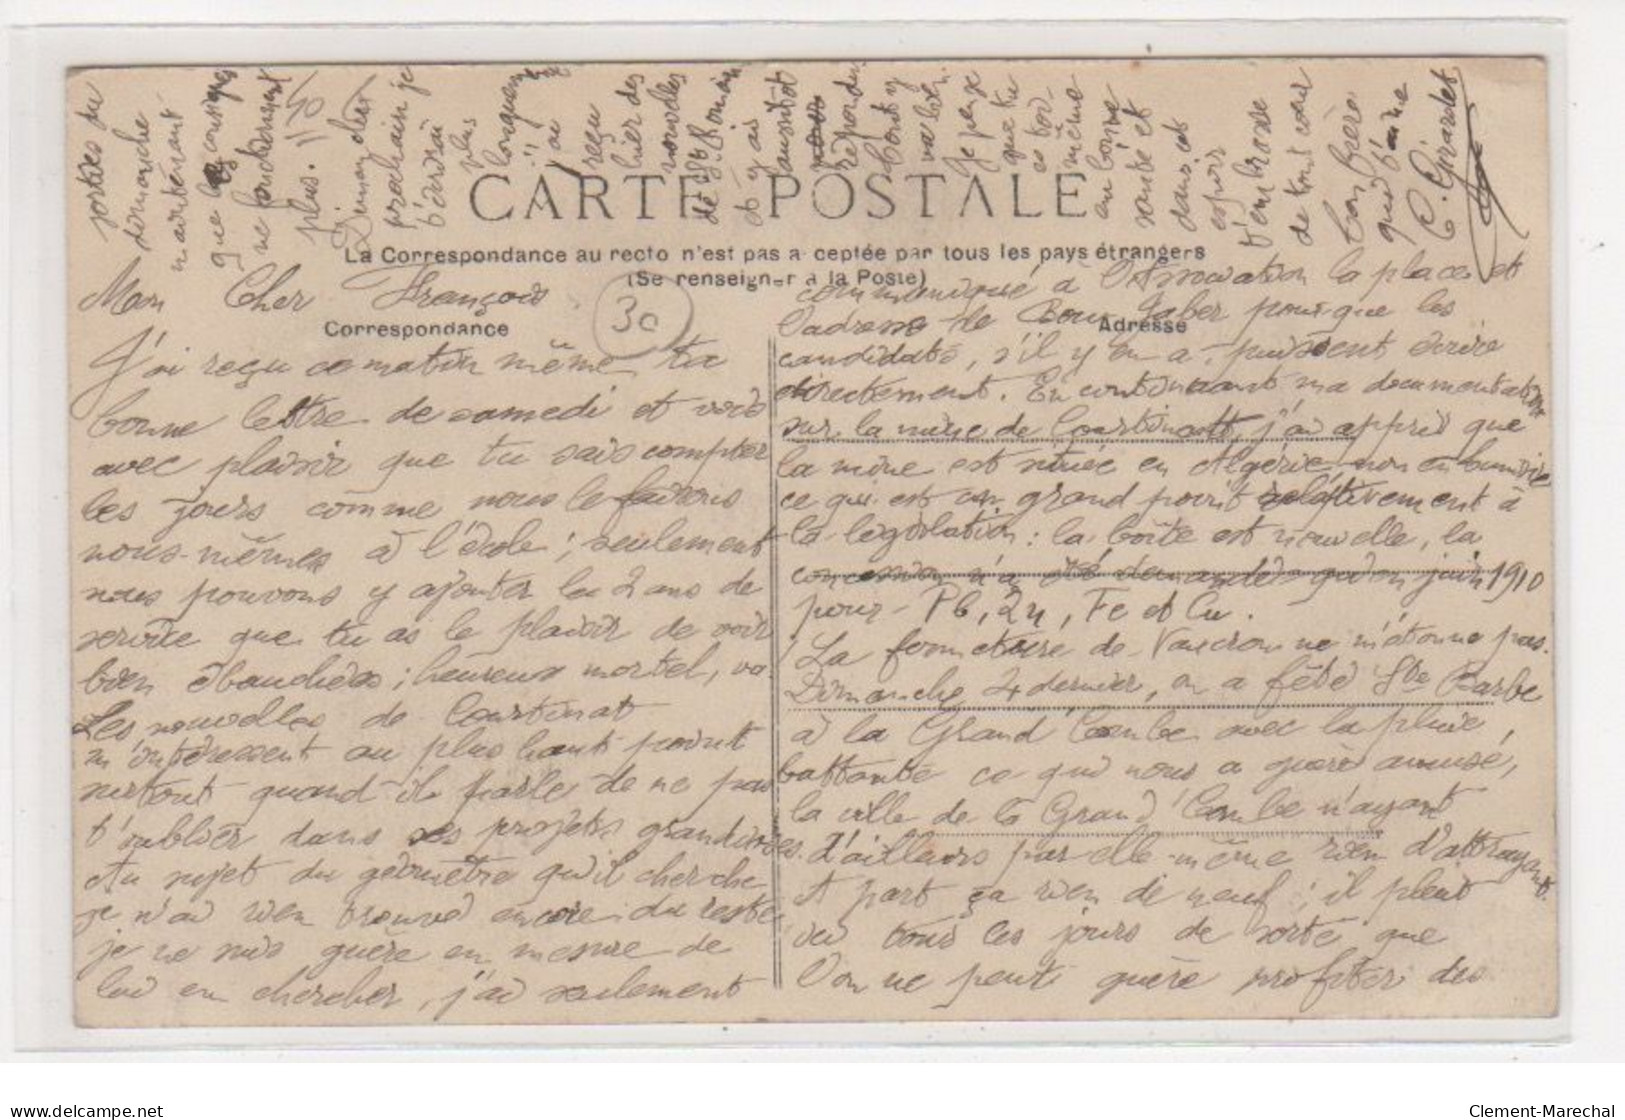 CARTE POSTALE
La Correspondance au recto n'est pas acceptée par tous les pays étrangers
(Se renseigner à la Poste)
Correspondance
Adresse
30
Mon Cher François
J'ai reçu ce matin même ta
bonne lettre de samedi et vois
avec plaisir que tu sais compter
les jours comme nous le faisons
nous-mêmes à l'école ; seulement
nous pouvons y ajouter les 2 ans de
service que tu as le plaisir de voir
bien ébauchés ; heureux mortel, va.
Les nouvelles de Courtinat
m'intéressent au plus haut point
surtout quand il parle de ne pas
t'oublier dans ses projets grandioses.
Au sujet du géomètre qu'il cherche
je n'ai rien trouvé encore du reste
je ne suis guère en mesure de
lui en chercher, j'ai seulement
communiqué à l'Association la place et
l'adresse de Bou Jaber pour que les
candidats, s'il y en a, puissent écrire
directement. En continuant ma documentation
sur la mine de Courtinat, j'ai appris que
la mine est située en Algérie non en
ce qui est un grand point relativement à
la législation : la boîte est nouvelle, la
concession n'a été demandée qu'en juin 1910
pour Pb, Zn, Fe et Cu.
La fermeture de ne m'étonne pas.
Dimanche 4 dernier, on a fêté Ste Barbe
à la Grand Combe avec la pluie
battante ce qui nous a guère amusé,
la ville de la Grand Combe n'ayant
d'ailleurs par elle-même rien d'attrayant.
A part ça rien de neuf ; il pleut
ici tous les jours de sorte que
l'on ne peut guère profiter des
sorties du
dimanche
maintenant
que les consignes
ne foudroient
plus.
Dimanche
prochain je
t'écrirai
plus
longuement
J'ai
reçu
hier des
nouvelles
de St Romain
et y ai
aussitôt
répondu
tout y
va bien.
Je pense
que tu
es toi-
même
en bonne
santé et
dans cet
espoir
t'embrasse
de tout cœur
Ton frère
qui t'aime
C. Girardet
Clement-Marechal
delcampe.net